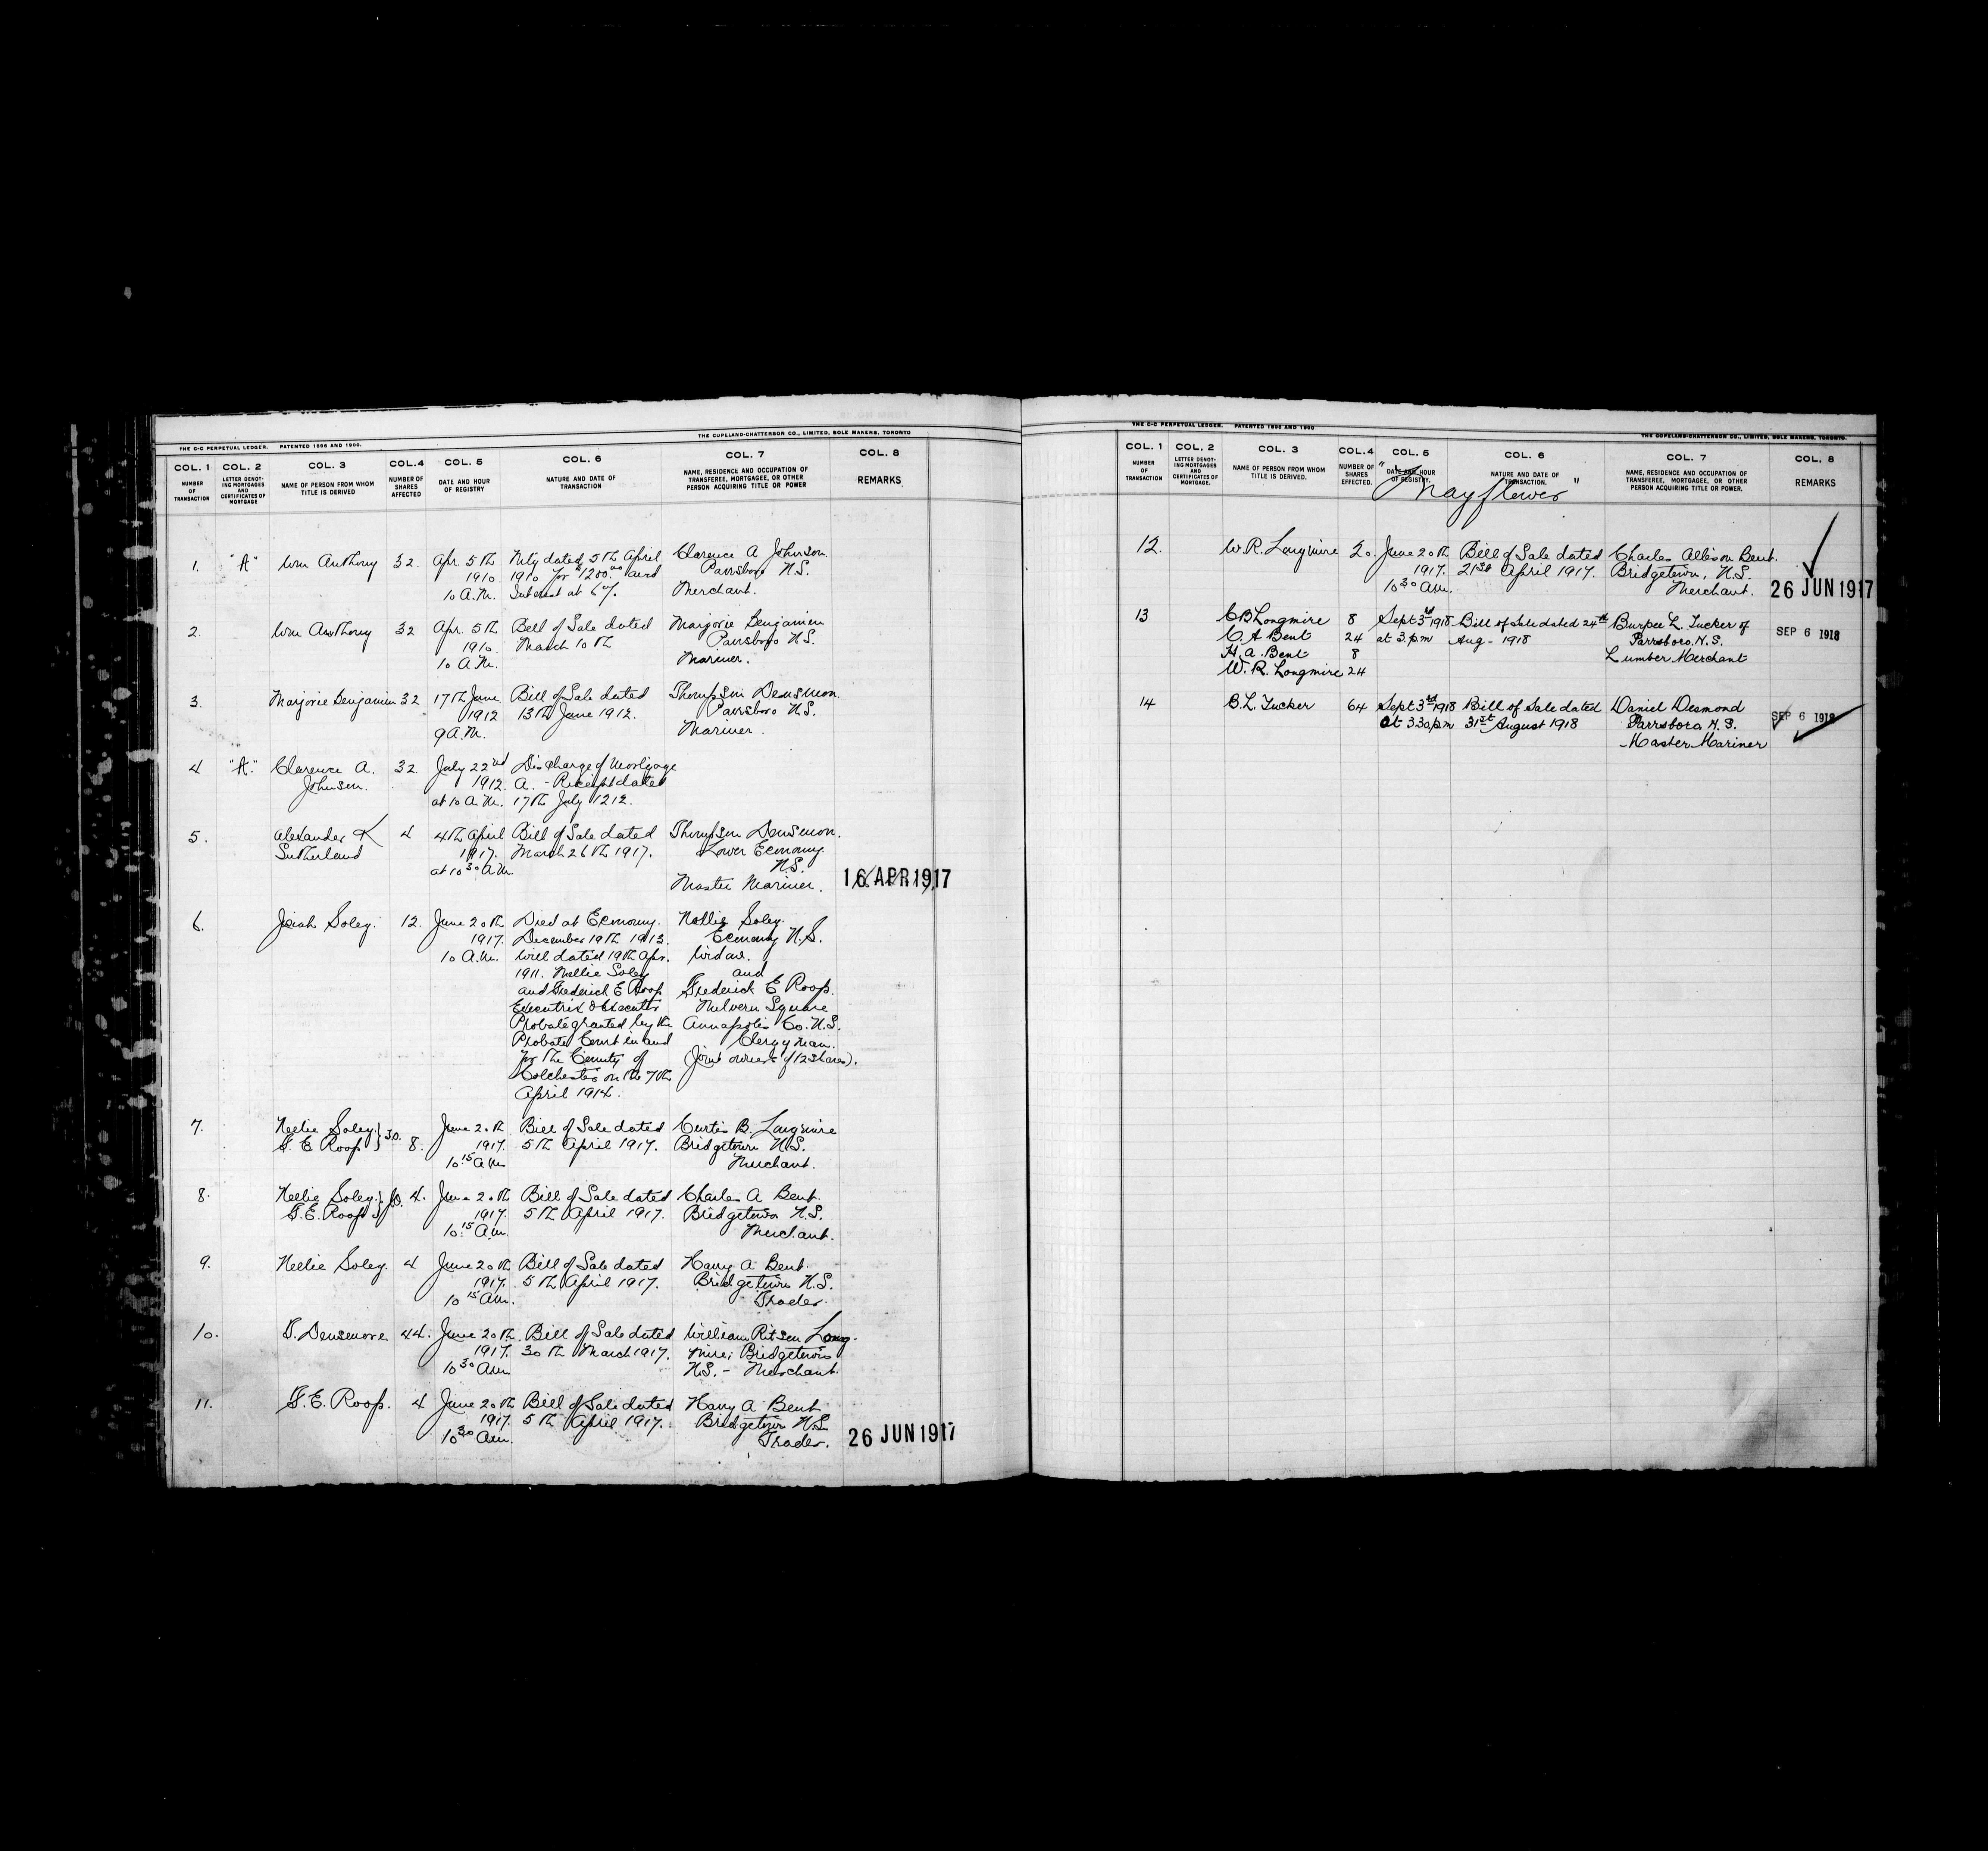 THE C-C PERPETUAL LEDGER. PATENTED 1896 AND 1900.
THE COPELAND-CHATTERSON CO., LIMITED, SOLE MAKERS, TORONTO
COL. 1 COL. 2 COL. 3 COL. 4 COL. 5 COL. 6 COL. 7 COL. 8
NUMBER OF TRANSACTION
LETTER DENOT-ING MORTGAGES AND CERTIFICATES OF MORTGAGE
NAME OF PERSON FROM WHOM TITLE IS DERIVED
NUMBER OF SHARES AFFECTED
DATE AND HOUR OF REGISTRY
NATURE AND DATE OF TRANSACTION
NAME, RESIDENCE AND OCCUPATION OF TRANSFEREE, MORTGAGEE, OR OTHER PERSON ACQUIRING TITLE OR POWER
REMARKS
1. "A" Wm Anthony 32. Apr. 5th Mtg dated 5th April Clarence A Johnson.
1910. 1910 for $1200.00 and Parrsboro N.S.
10 A.M. Interest at 6%. Merchant.
2. Wm Anthony 32 Apr. 5th Bill of Sale dated Marjorie Benjamin
1910. March 10th Parrsboro N.S.
10 A.M. Mariner.
3. Marjorie Benjamin 32 17th June Bill of Sale dated Thompson Densmon.
1912 13th June 1912. Parrsboro N.S.
9 A.M. Mariner.
4 "A." Clarence A. 32. July 22nd Discharge of Mortgage
Johnson. 1912. A. - Receipt dated
at 10 A.M. 17th July 1212.
5. Alexander K 4 4th April Bill of Sale dated Thompson Densmon.
Sutherland 1917. March 26th 1917. Lower Economy
at 10 30 A.M. N.S.
Master Mariner. 16 APR 1917
6. Josiah Soley. 12. June 20th Died at Economy. Nellie Soley.
1917. December 19th 1913. Economy N.S.
10 A.M. Will dated 19th Apr. Widow.
1911. Nellie Soley and
and Frederick E Roop Frederick E Roop.
Executrix & Executor Melvern Square
Probate granted by the Annapolis Co. N.S.
Probate Court in and Clergyman.
for the County of (Joint owners of 12 shares).
Colchester on the 7th
April 1914.
7. Nellie Soley } J.O. June 20th Bill of Sale dated Curtis B. Longmire
F. E Roop 8. 1917. 5th April 1917. Bridgetown N.S.
10 15 A.M. Merchant.
8. Nellie Soley } J.O. 4. June 20th Bill of Sale dated Charles A Bent.
F. E. Roop 1917. 5th April 1917. Bridgetown N.S.
10 15 A.M. Merchant.
9. Nellie Soley. 4 June 20th Bill of Sale dated Harry A Bent.
1917. 5th April 1917. Bridgetown N.S.
10 15 A.M. Trader.
10. T. Densmore 44. June 20th Bill of Sale dated William Ritson Long-
1917. 30th March 1917. mire, Bridgetown
10 30 A.M. N.S. - Merchant.
11. F. E. Roop. 4 June 20th Bill of Sale dated Harry A Bent
1917. 5th April 1917. Bridgetown N.S.
10 30 A.M. Trader. 26 JUN 1917
THE C-C PERPETUAL LEDGER. PATENTED 1896 AND 1900
THE COPELAND-CHATTERSON CO., LIMITED, SOLE MAKERS, TORONTO.
COL. 1 COL. 2 COL. 3 COL. 4 COL. 5 COL. 6 COL. 7 COL. 8
NUMBER OF TRANSACTION
LETTER DENOT-ING MORTGAGES AND CERTIFICATES OF MORTGAGE.
NAME OF PERSON FROM WHOM TITLE IS DERIVED.
NUMBER OF SHARES EFFECTED.
DATE AND HOUR OF REGISTRY.
NATURE AND DATE OF TRANSACTION.
NAME, RESIDENCE AND OCCUPATION OF TRANSFEREE, MORTGAGEE, OR OTHER PERSON ACQUIRING TITLE OR POWER.
REMARKS
"Mayflower"
12. W. R. Longmire 20. June 20th Bill of Sale dated Charles Allison Bent.
1917. 21st April 1917. Bridgetown, N.S.
10 30 A.M. Merchant. 26 JUN 1917
13 C B Longmire 8 Sept 3rd 1918 Bill of Sale dated 24th Burpee L. Tucker of
C. A Bent 24 at 3. p m Aug - 1918 Parrsboro, N.S. SEP 6 1918
H. A. Bent 8 Lumber Merchant
W. R. Longmire 24
14 B. L. Tucker 64 Sept 3rd 1918 Bill of Sale dated Daniel Desmond
at 3 30 p m 31st August 1918 Parrsboro N.S. SEP 6 1918
Master Mariner